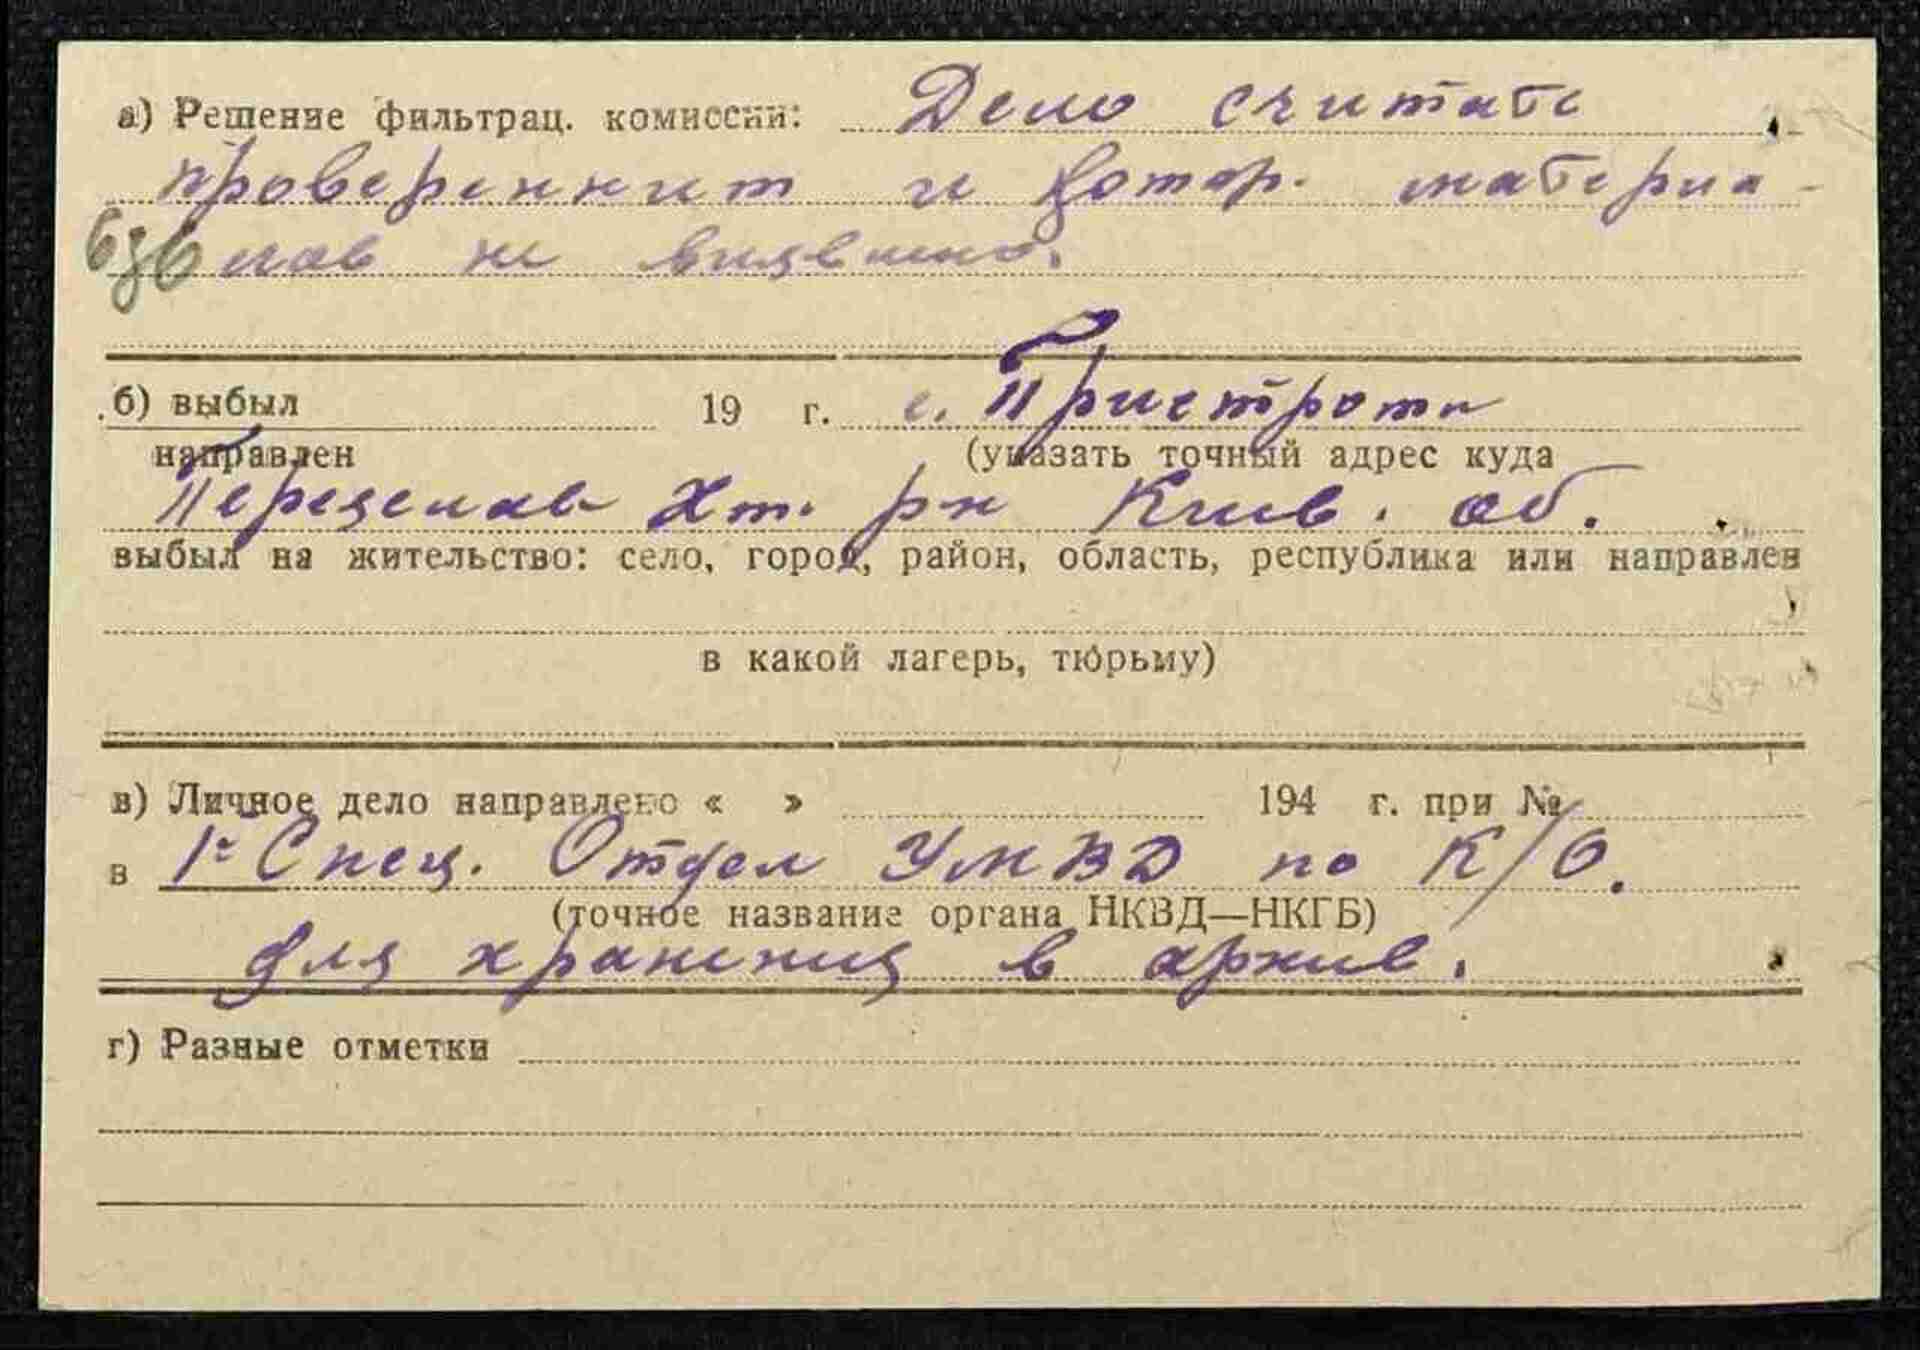 а) Решение фильтрац. комиссии: Дело считать
провереннит и матерпа-
лов не выявлено.
б) выбыл 19 г. с. Пристроти
направлен (указать точный адрес куда
Переяслав Хт. рн Киев. об.
выбыл на жительство: село, город, район, область, республика или направлен
в какой лагерь, тюрьму)
в) Личное дело направлено « » 194 г. при №
в 1й Спец. Отдел УМВД по К/О.
(точное название органа НКВД—НКГБ)
для хранения в архив.
г) Разные отметки